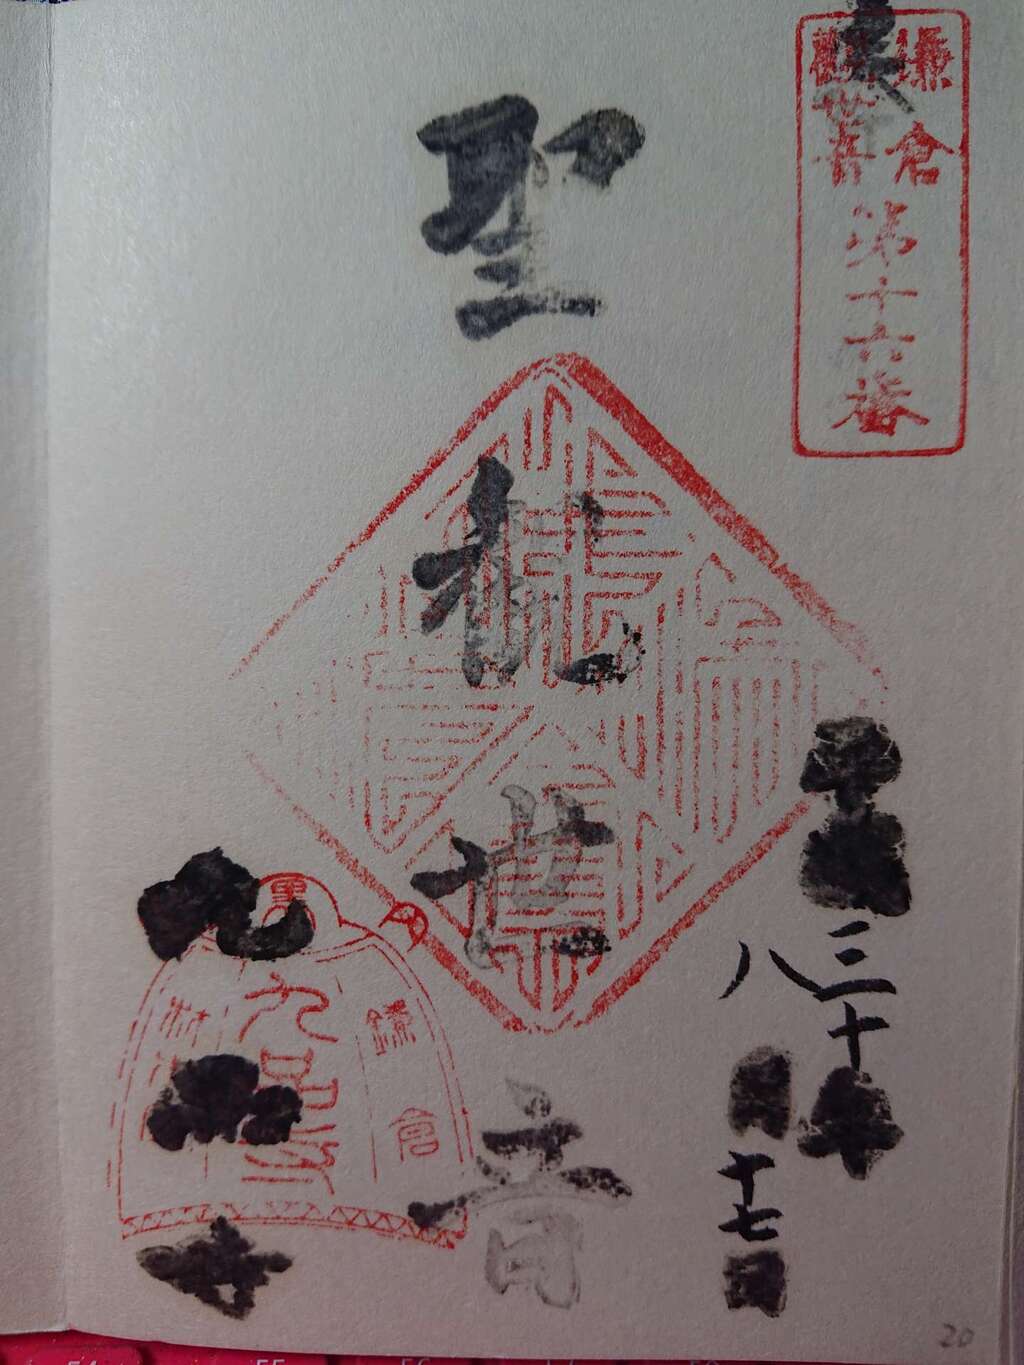 鎌倉
觀世音
第十六番
聖
観
世
音
平成三十年
八月十七日
鎌倉
九品寺
九品寺